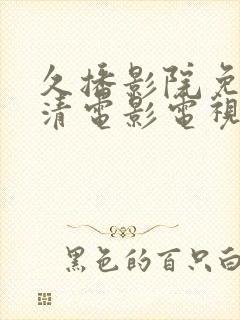 久播影院免
清電影電視
黑色的百只白